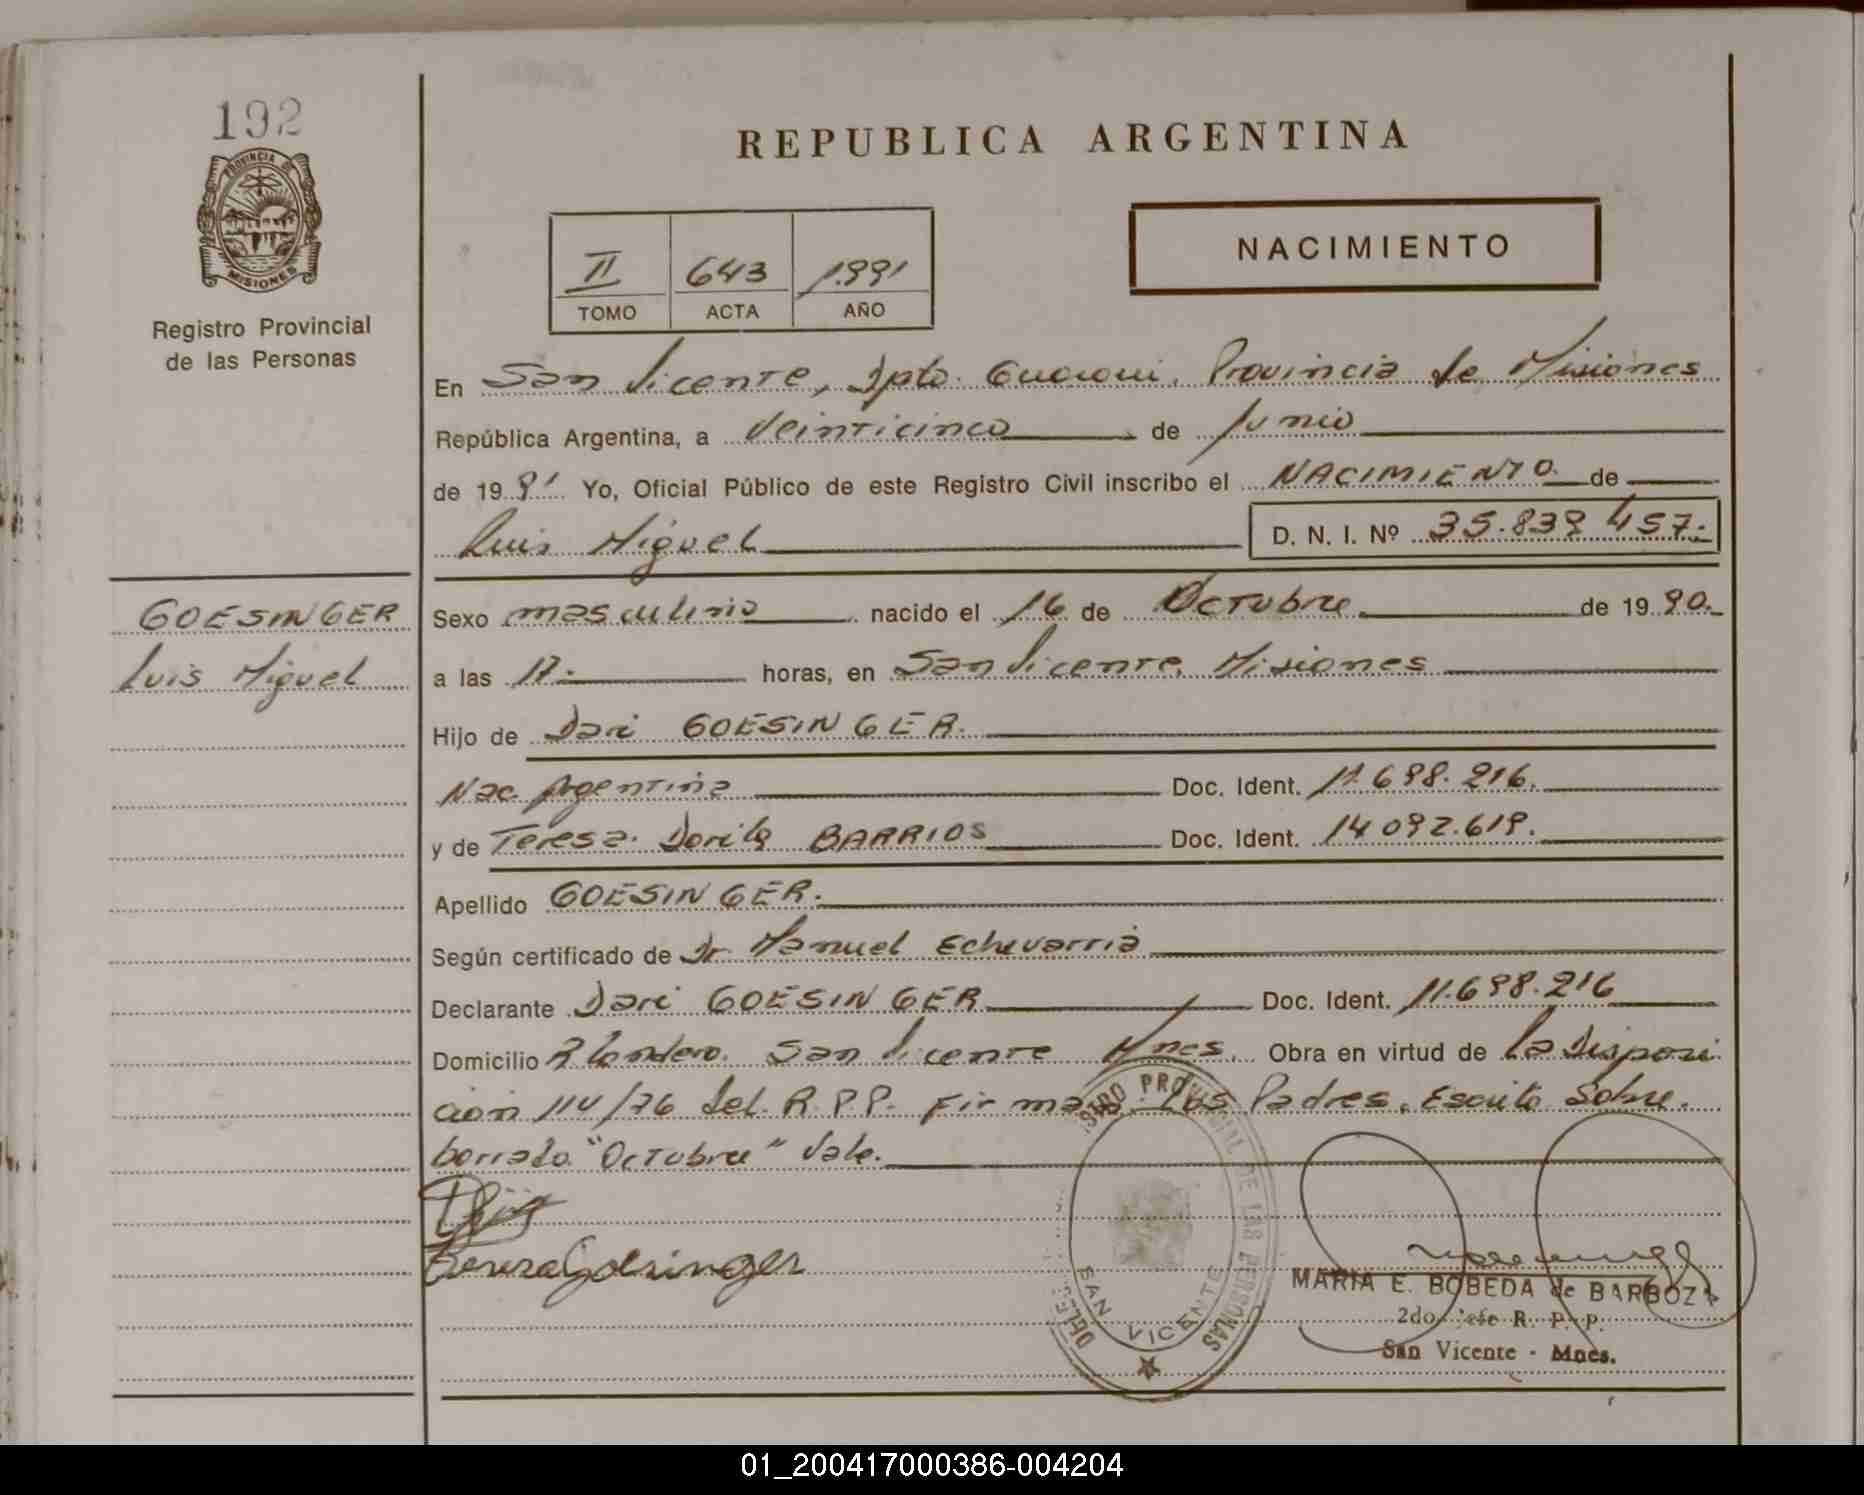 192
PROVINCIA DE
MISIONES
Registro Provincial
de las Personas
REPUBLICA ARGENTINA
NACIMIENTO
II 643 1991
TOMO ACTA AÑO
En San Vicente, Dpto. Guarani, Provincia de Misiones
República Argentina, a Veinticinco de Junio
de 1991 Yo, Oficial Público de este Registro Civil inscribo el NACIMIENTO de
Luis Miguel D. N. I. Nº 35.839.457.
GOESINGER
Luis Miguel
Sexo masculino nacido el 16 de Octubre de 1990.
a las horas, en San Vicente, Misiones
Hijo de Dari GOESINGER.
Nac. Argentina Doc. Ident. 11.698.216.
y de Teresa Dorila BARRIOS Doc. Ident. 14.092.619.
Apellido GOESINGER.
Según certificado de Dr Manuel Echevarria
Declarante Dari GOESINGER Doc. Ident. 11.698.216
Domicilio San Vicente Mnes. Obra en virtud de la Disposi
cion 114/76 del R.P.P. Firman Los Padres. Escrito Sobre
borrado "Octubre" Vale.
Teresa Goesinger
REGISTRO PROVINCIAL DE LAS PERSONAS
SAN VICENTE
MARIA E. BOBEDA de BARBOZA
2do Jefe R. P. P.
San Vicente - Mnes.
01_200417000386-004204